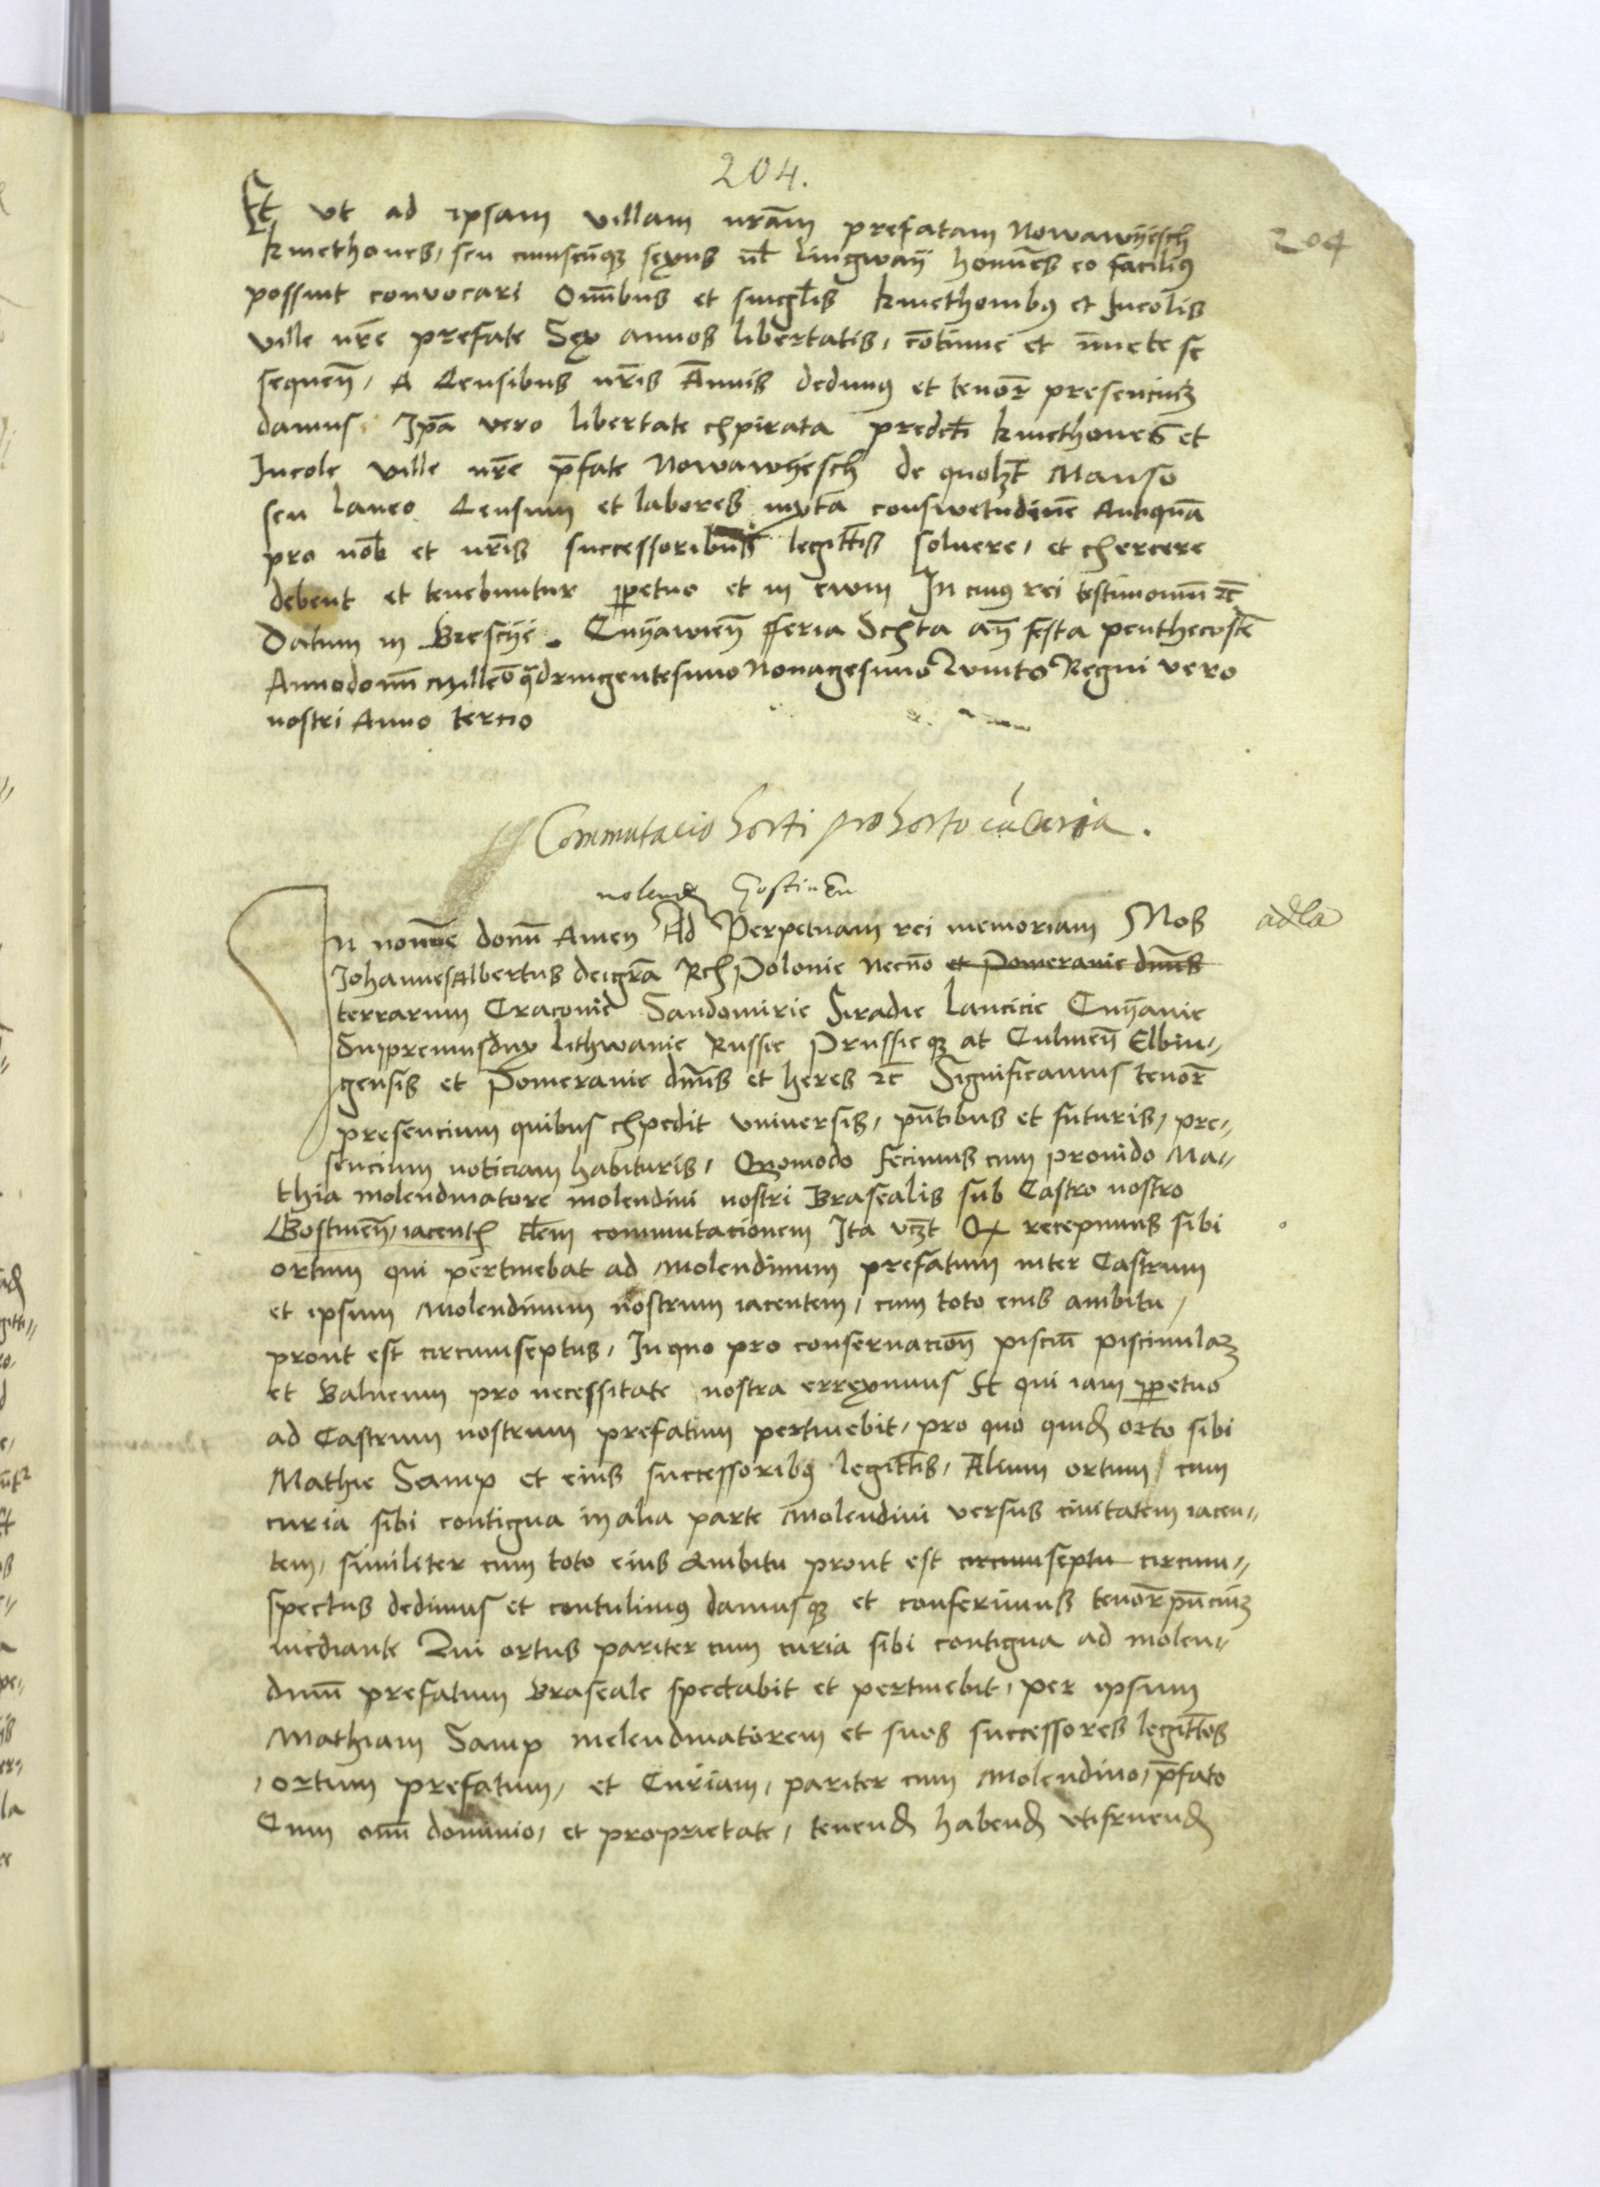 204.
204
Et vt ad ipsam villam nram prefatam Nowawyesch
kmethones, seu cuiuscunq sexus vl lingwaÿ homines eo facilius
possint convocari Omibus et singlis kmethonibus et Incolis
ville nre prefate Sex annos libertatis, continue et se
sequen, A Censibus nris Annuis dedimus et tenor presencium
damus. Ipa vero libertate expirata predcti kmethones et
Incole ville nre pfate Nowawyesch de quolzt Manso
seu laneo Censum et labores iuxta conswetudinem Antiquam
pro nob et nris successoribus legittis soluere, et exercere
debent et tenebuntur ppetuo et in ewm In cuius rei testimonium etc
Datum in Brescye Cuyawien fferia Sexta an festa penthecostes
Anno domi Milleo quadringentesimo Nonagesimo Quinto Regni vero
nostri Anno tercio
Commutacio horti pro horto cu curia.
molend Gostinen
In nomine domi Amen Ad Perpetuam rei memoriam Nos adla
Johannes Albertus dei gra Rex Polonie necno et Pomeranie dnus
terrarum Cracovie Sandomirie Siradie Lancicie Cuyavie
Supremus dux Lithwanie Russie Prussieq ac Culmen Elbin-
gensis et Pomeranie dnus et heres etc Significamus tenor
presencium quibus expedit vniversis, pntibus et futuris, pre-
sencium noticiam habituris, Quomodo fecimus cum provido Ma-
thia molendinatore molendini nostri Brasealis sub Castro nostro
Gostinen, iacent tlem commutacionem Ita vczt Qz recepimus sibi
ortum qui pertinebat ad Molendinum prefatum inter Castrum
et ipsum Molendinum nostrum iacentem, cum toto eius ambitu,
prout est circumseptus, In quo pro conservacion pisciu piscinulam
et Balneum pro necessitate nostra erreximus Et qui iam ppetuo
ad Castrum nostrum prefatum pertinebit, pro quo quid orto sibi
Mathie Samp et eius successoribus legittis, Alium ortum cum
curia sibi contigua in alia parte Molendini versus civitatem iacen-
tem, similiter cum toto eius Ambitu prout est circumseptu circum-
spectus dedimus et contulimus damusq et conferimus tenor pncium
mediante Qui ortus pariter cum curia sibi contigua ad molen-
dinum prefatum braseale spectabit et pertinebit, per ipsum
Mathiam Samp molendinatorem et suos successores legittos
ortum prefatum, et Curiam, pariter cum Molendino, pfato
Cum omi dominio, et proprietate, tenend habend vtifruend